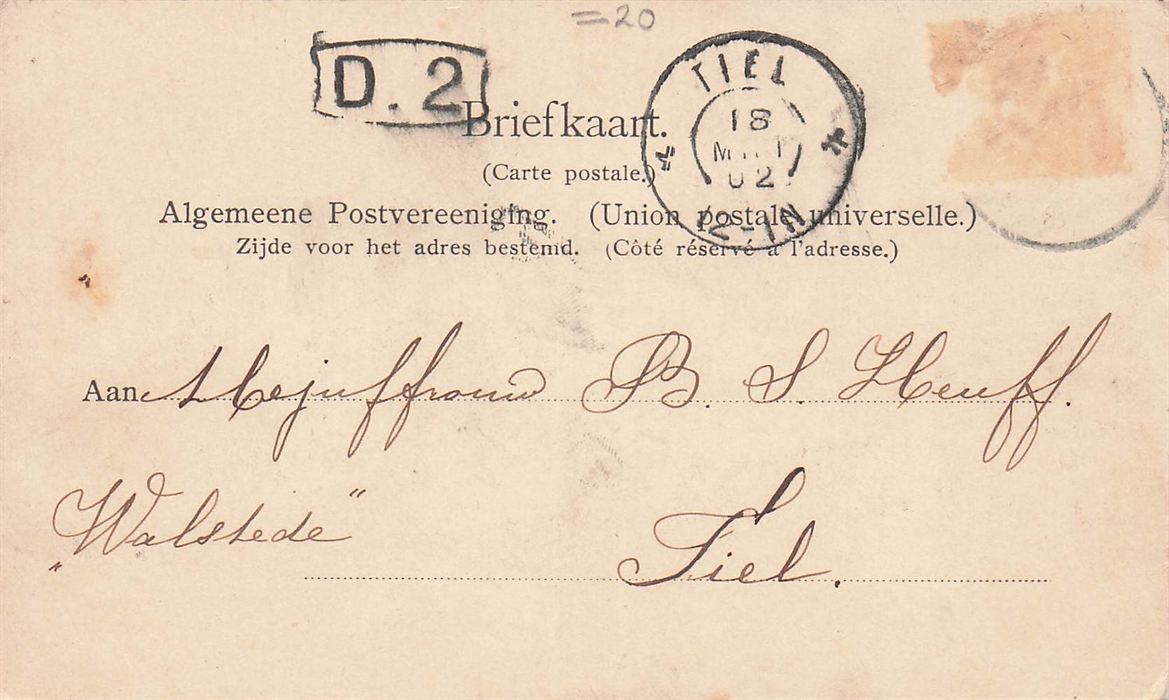 =20
D. 2
TIEL
18
MRT
02
12-1N
Briefkaart.
(Carte postale.)
Algemeene Postvereeniging. (Union postale universelle.)
Zijde voor het adres bestemd. (Côté réservé à l'adresse.)
Aan Mejuffrouw B. S. Heuff.
„Walstede“
Tiel.